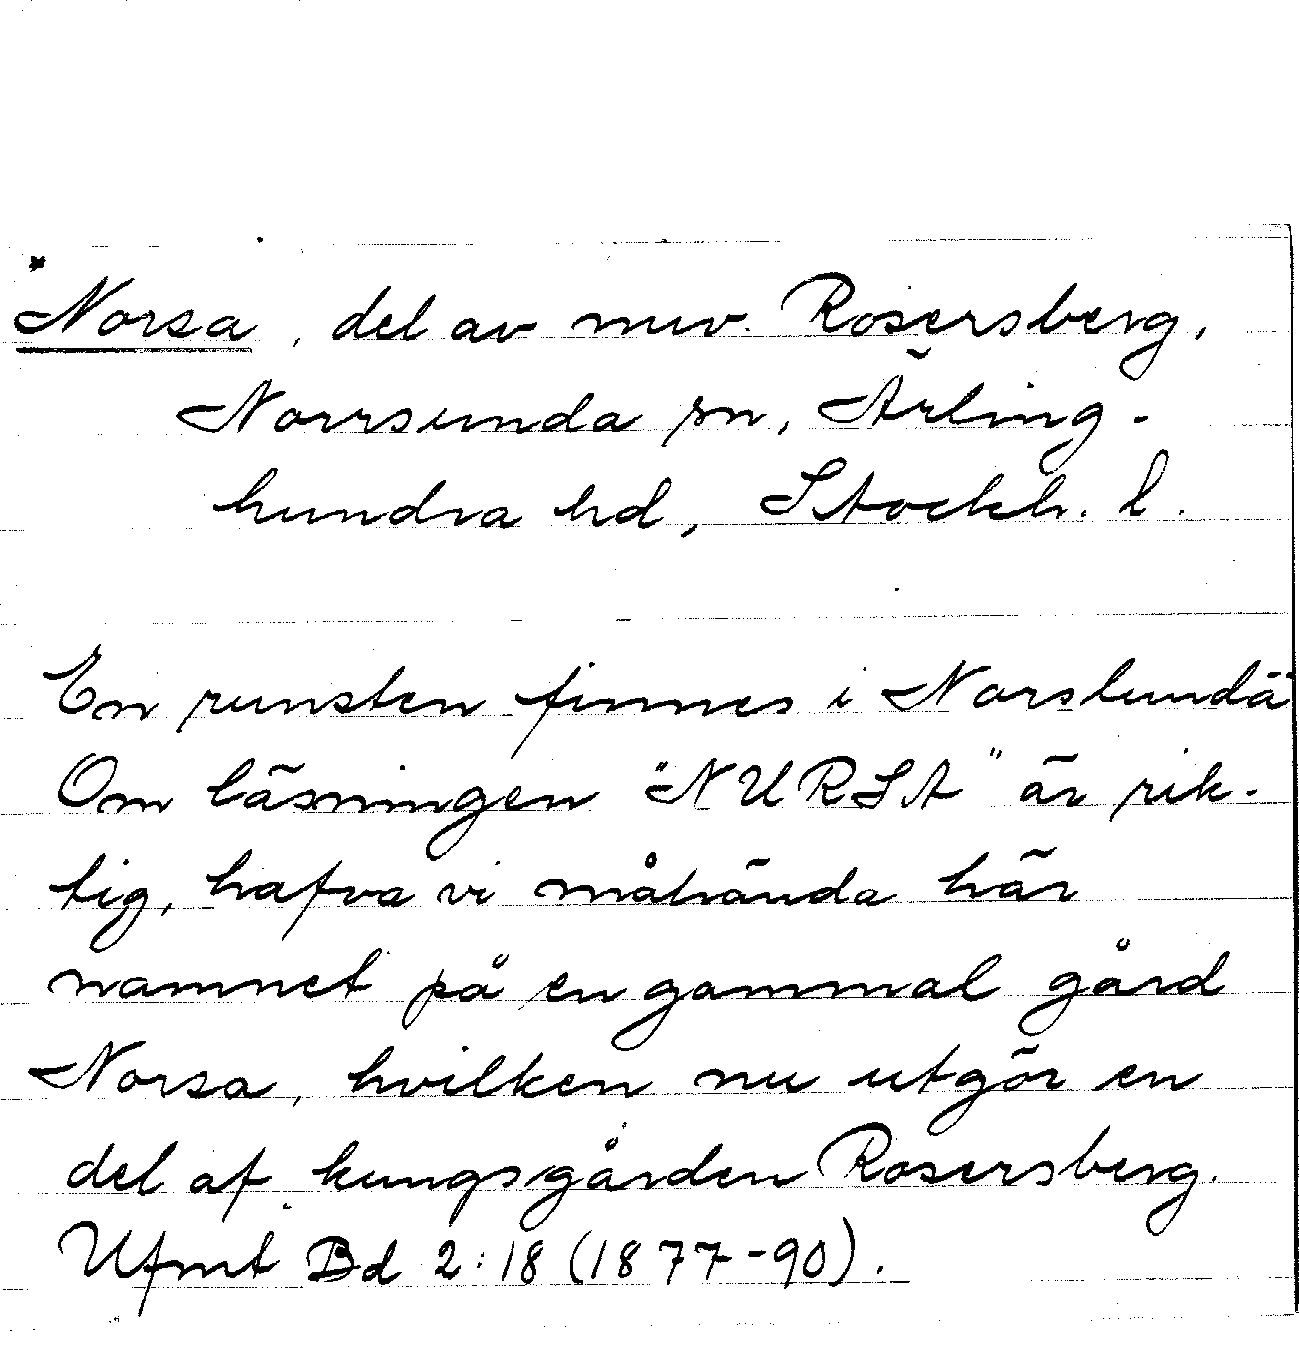 *Norsa, del av nuv. Rosersberg,
Norrsunda sn, Ärling-
hundra hd, Stockh. l.
En runsten finnes i Norslunda
Om läsningen "NURSA" är rik-
tig, hafva vi måhända här
namnet på en gammal gård
Norsa, hvilken nu utgör en
del af kungsgården Rosersberg.
Ufmt Bd 2:18 (1877-90).